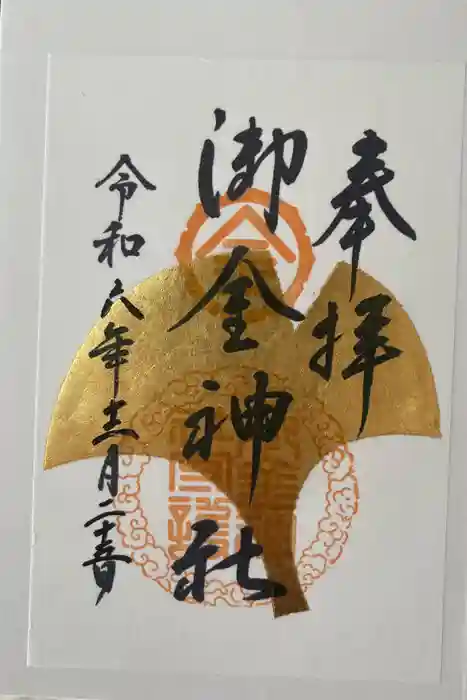 奉拝
御金神社
令和六年十二月二十日